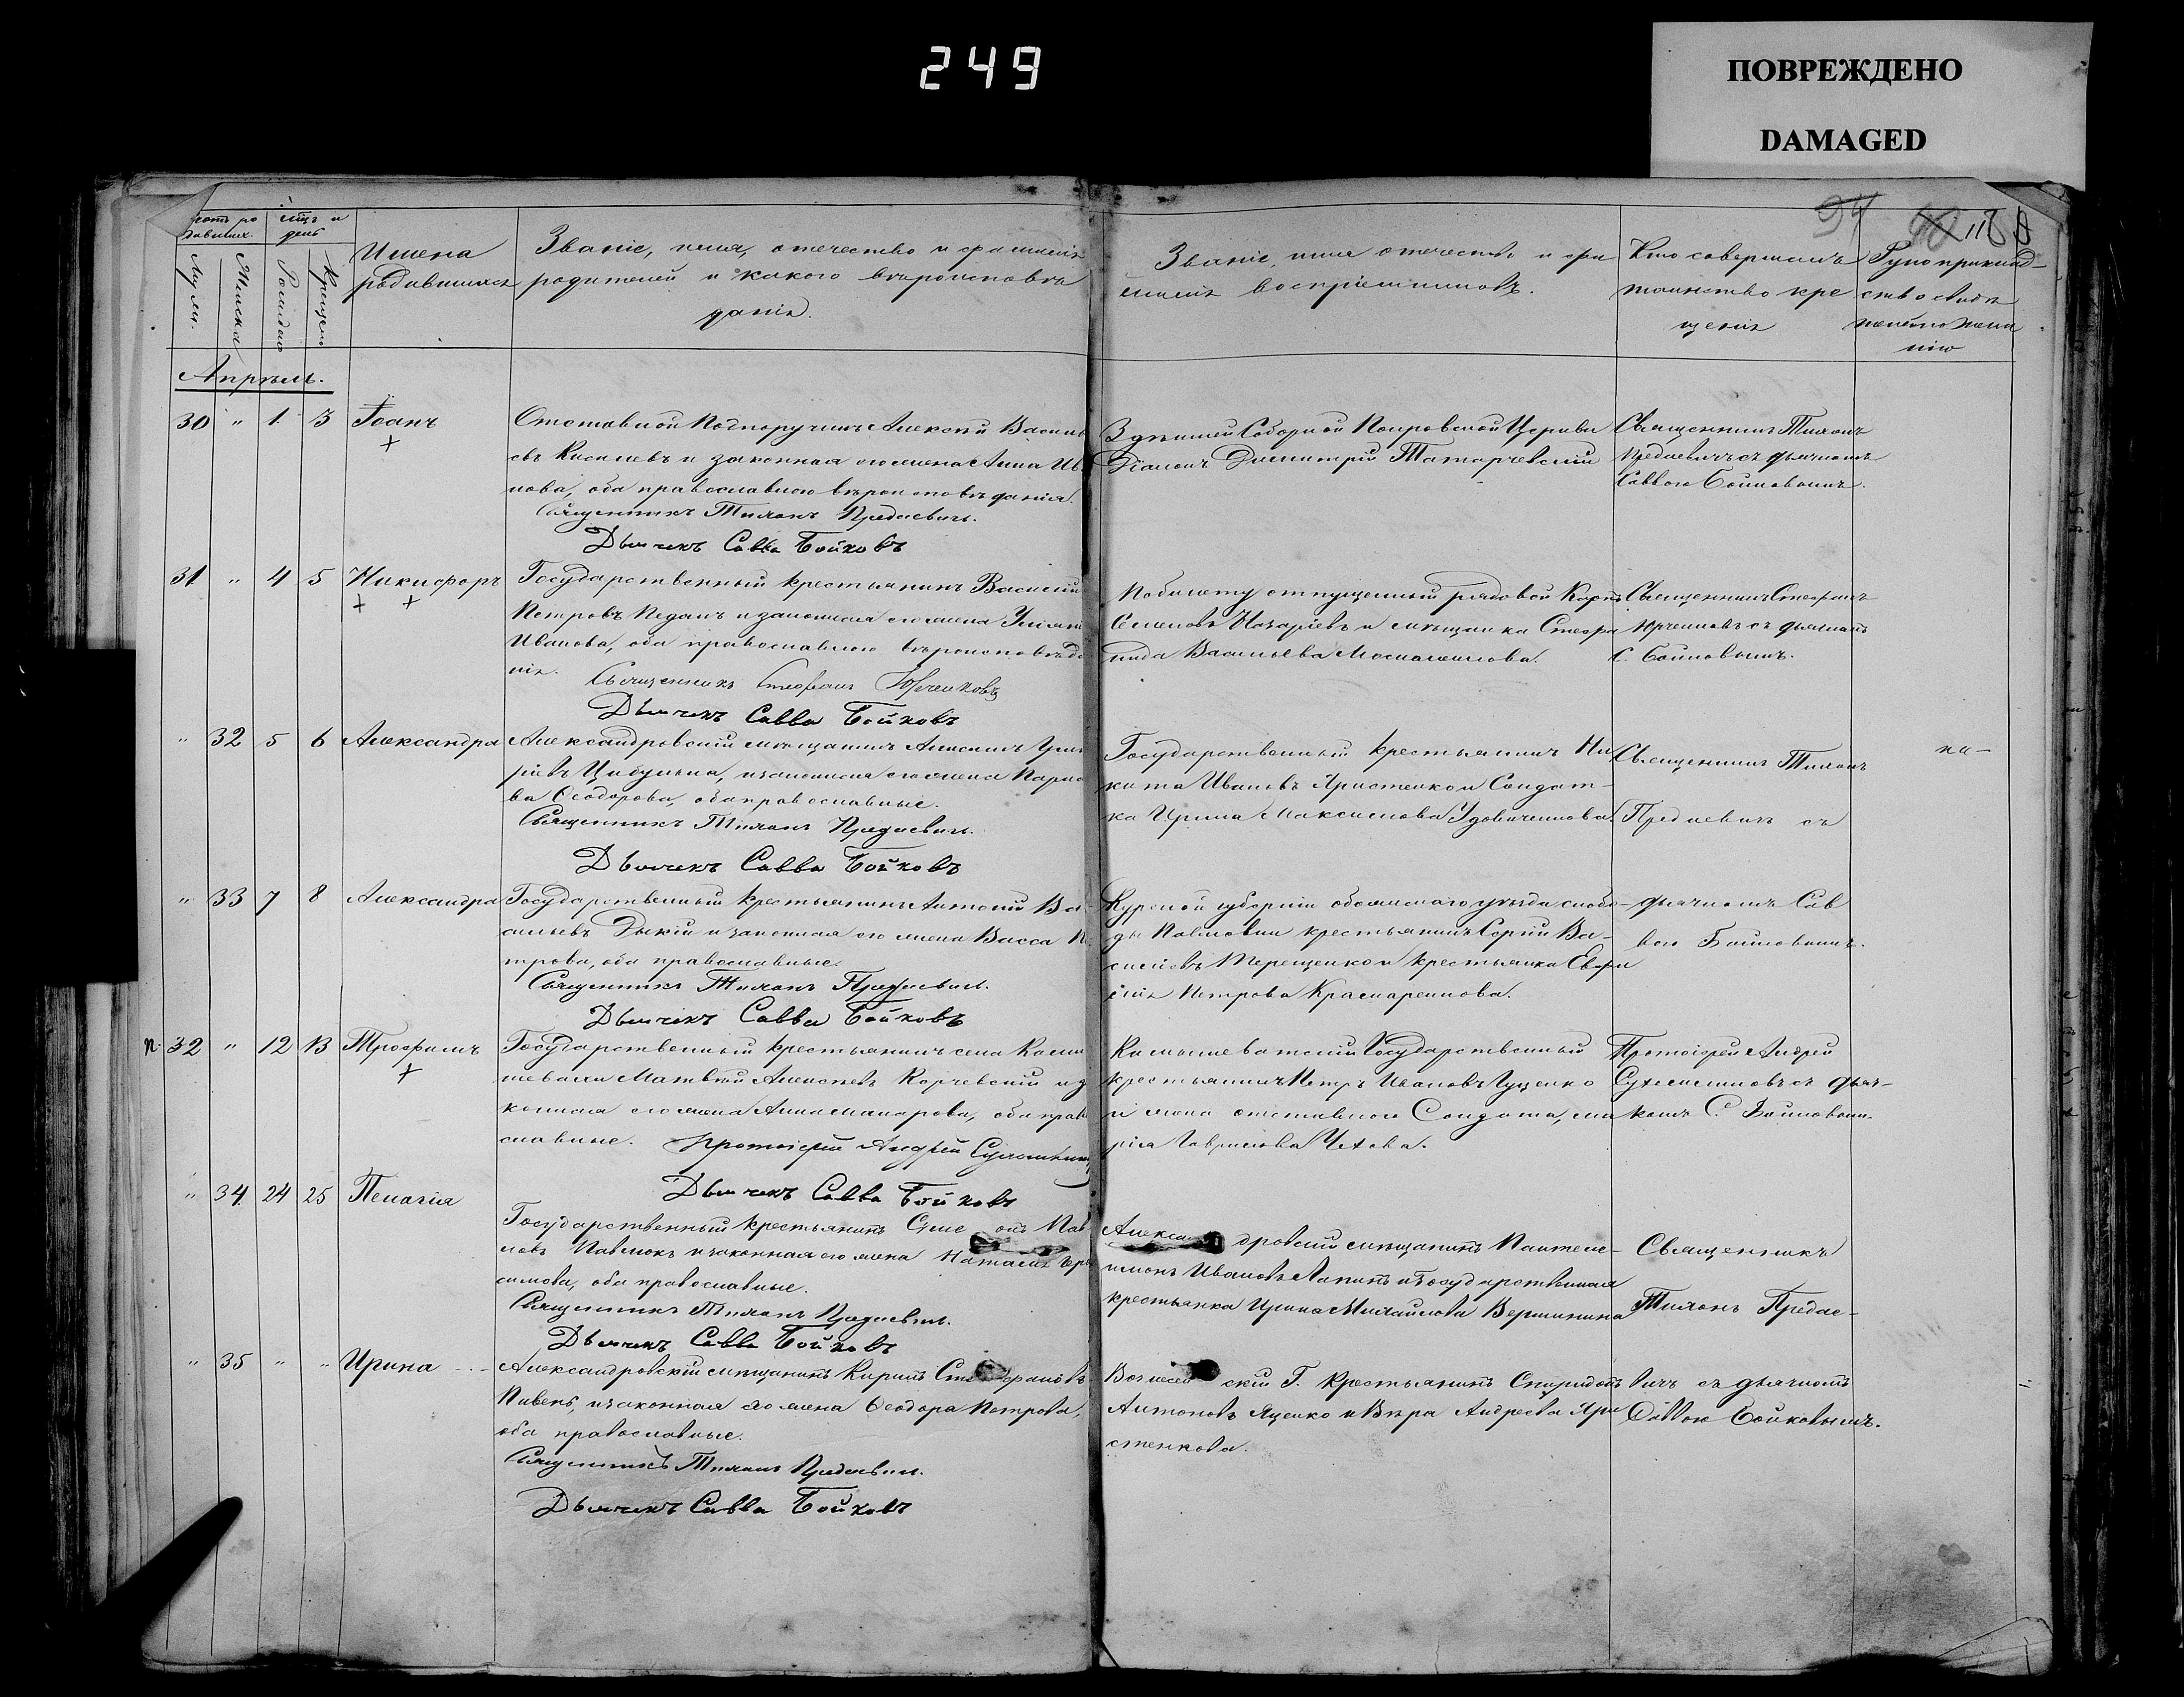 249
ПОВРЕЖДЕНО
DAMAGED
94
Имена
родившихся
Званіе, имя, отечество и фамилія
родителей и какого вѣроисповѣ
данія.
Званіе, имя отечество и фа
милія воспріемниковъ.
Кто совершалъ
таинство кре
щенія
Рукоприклад-
ство свидѣ
Апрѣль.
30 " 1 3 Іоанъ
Отставной Подпоручикъ Алексѣй Василь
евъ Киселевъ и законная его жена Анна Ив
нова, оба православного вѣроисповѣданія.
Священникъ Тихонъ Предаевичъ.
Дьячекъ Савва Бойковъ
Здѣшней Соборной Покровской Церкви
Діаконъ Димитрій Татарчевскій
Священникъ Тихонъ
Предаевичъ съ дьячкомъ
Саввою Бойковымъ.
31 " 4 5 Никифоръ
Государственный крестьянинъ Василій
Петровъ Педанъ и законная его жена
Иванова, оба православного вѣроисповѣда
нія. Священникъ Стефанъ Юрченковъ
Дьячекъ Савва Бойковъ
По билету отпущенный рядовой Карпъ
Семеновъ Назаріевъ и мѣщанка Стефа
нида Васильева
Священникъ Стефанъ
Юрченковъ съ дьячкомъ
С. Бойковымъ.
" 32 5 6 Александра
Александровскій мѣщанинъ
Цыбулька, и законная его жена Параске
ва Ѳеодорова, оба православные.
Священникъ Тихонъ Предаевичъ.
Дьячекъ Савва Бойковъ
Государственный крестьянинъ Ни
кита Ивановъ Яристенко и Солдат-
ка Ирина Максимова Удовиченкова.
Священникъ Тихонъ
Предаевичъ съ
" 33 7 8 Александра
Государственный крестьянинъ Антоній Ва-
сильевъ Дикій и законная его жена Васса Пе
трова, оба православные.
Священникъ Тихонъ Предаевичъ.
Дьячекъ Савва Бойковъ
Курской губерніи обоянскаго уѣзда слобо-
ды Павловки крестьянинъ Сергій Ва-
силіевъ Терещенко и крестьянка Евфи
мія Петрова
дьячкомъ Сав
вою Бойковымъ.
32 " 12 13 Трофимъ
Государственный крестьянинъ села Камы
шевахи Матвѣй Алексѣевъ Корчевскій и за
конная его жена Анна Макарова, оба право
славные. Протоіерей Андрей
Дьячекъ Савва Бойковъ
Камышеватскій Государственный
крестьянинъ Петръ Ивановъ Гуценко
и жена отставного Солдата, Ма
рія Гаврилова Чехова.
Протоіерей Андрей
съ дьяч-
комъ С. Бойковымъ.
" 34 24 25 Пелагія
Государственный крестьянинъ Симеонъ Пав
ловъ Павлюкъ и законная его жена Наталія Гера
симова, оба православные.
Священникъ Тихонъ Предаевичъ.
Дьячекъ Савва Бойковъ
Александровскій мѣщанинъ Пантеле-
имонъ Ивановъ Лапинъ и Государственная
крестьянка Ирина Михайлова Вершинина
Священникъ
Тихонъ Предае-
" 35 " " Ирина
Александровскій мѣщанинъ Кирилъ Стефановъ
Пивень, и законная его жена Ѳеодора Петрова,
оба православные.
Священникъ Тихонъ Предаевичъ.
Дьячекъ Савва Бойковъ
Вознесенскій Г. крестьянинъ Спиридонъ
Антоновъ Яценко и Вѣра Андреева Яри
стенкова.
вичъ съ дьячкомъ
Саввою Бойковымъ.